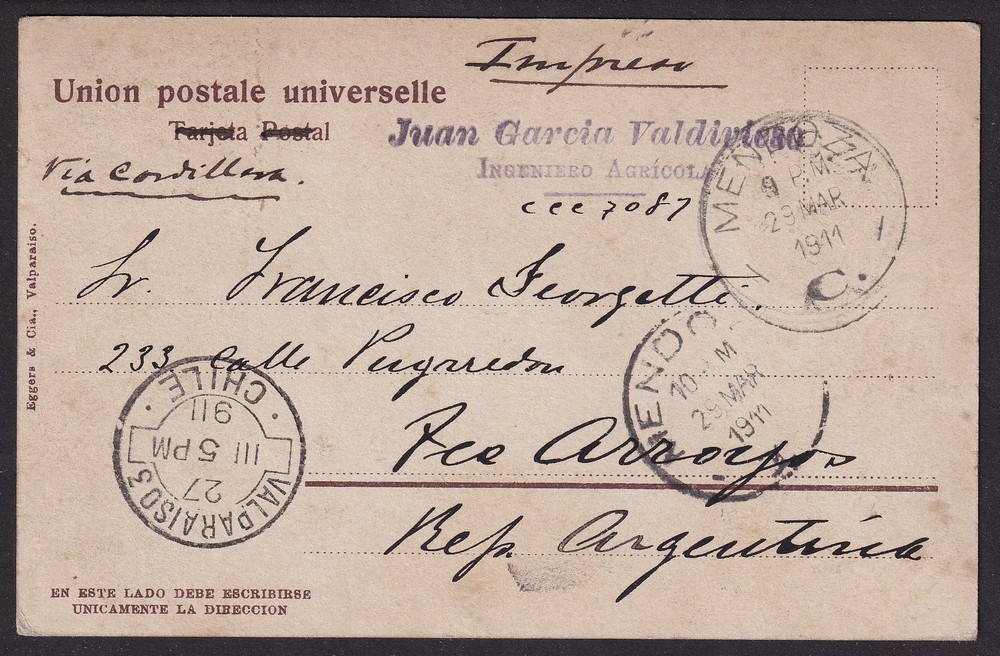 Impreso
Union postale universelle
Tarjeta Postal
Juan Garcia Valdivieso
INGENIERO AGRÍCOLA
Via Cordillera.
ccc7087
MENDOZA
9 P.M.
29 MAR
1911
C.
Sr. Francisco Feorgetti.
233 Calle Pueyrredon
MENDO
10 M
29 MAR
1911
CHILE
911
III 5 PM
27
VALPARAISO 3
Arroyos
Rep. Argentina
Eggers & Cia., Valparaiso.
EN ESTE LADO DEBE ESCRIBIRSE
UNICAMENTE LA DIRECCION